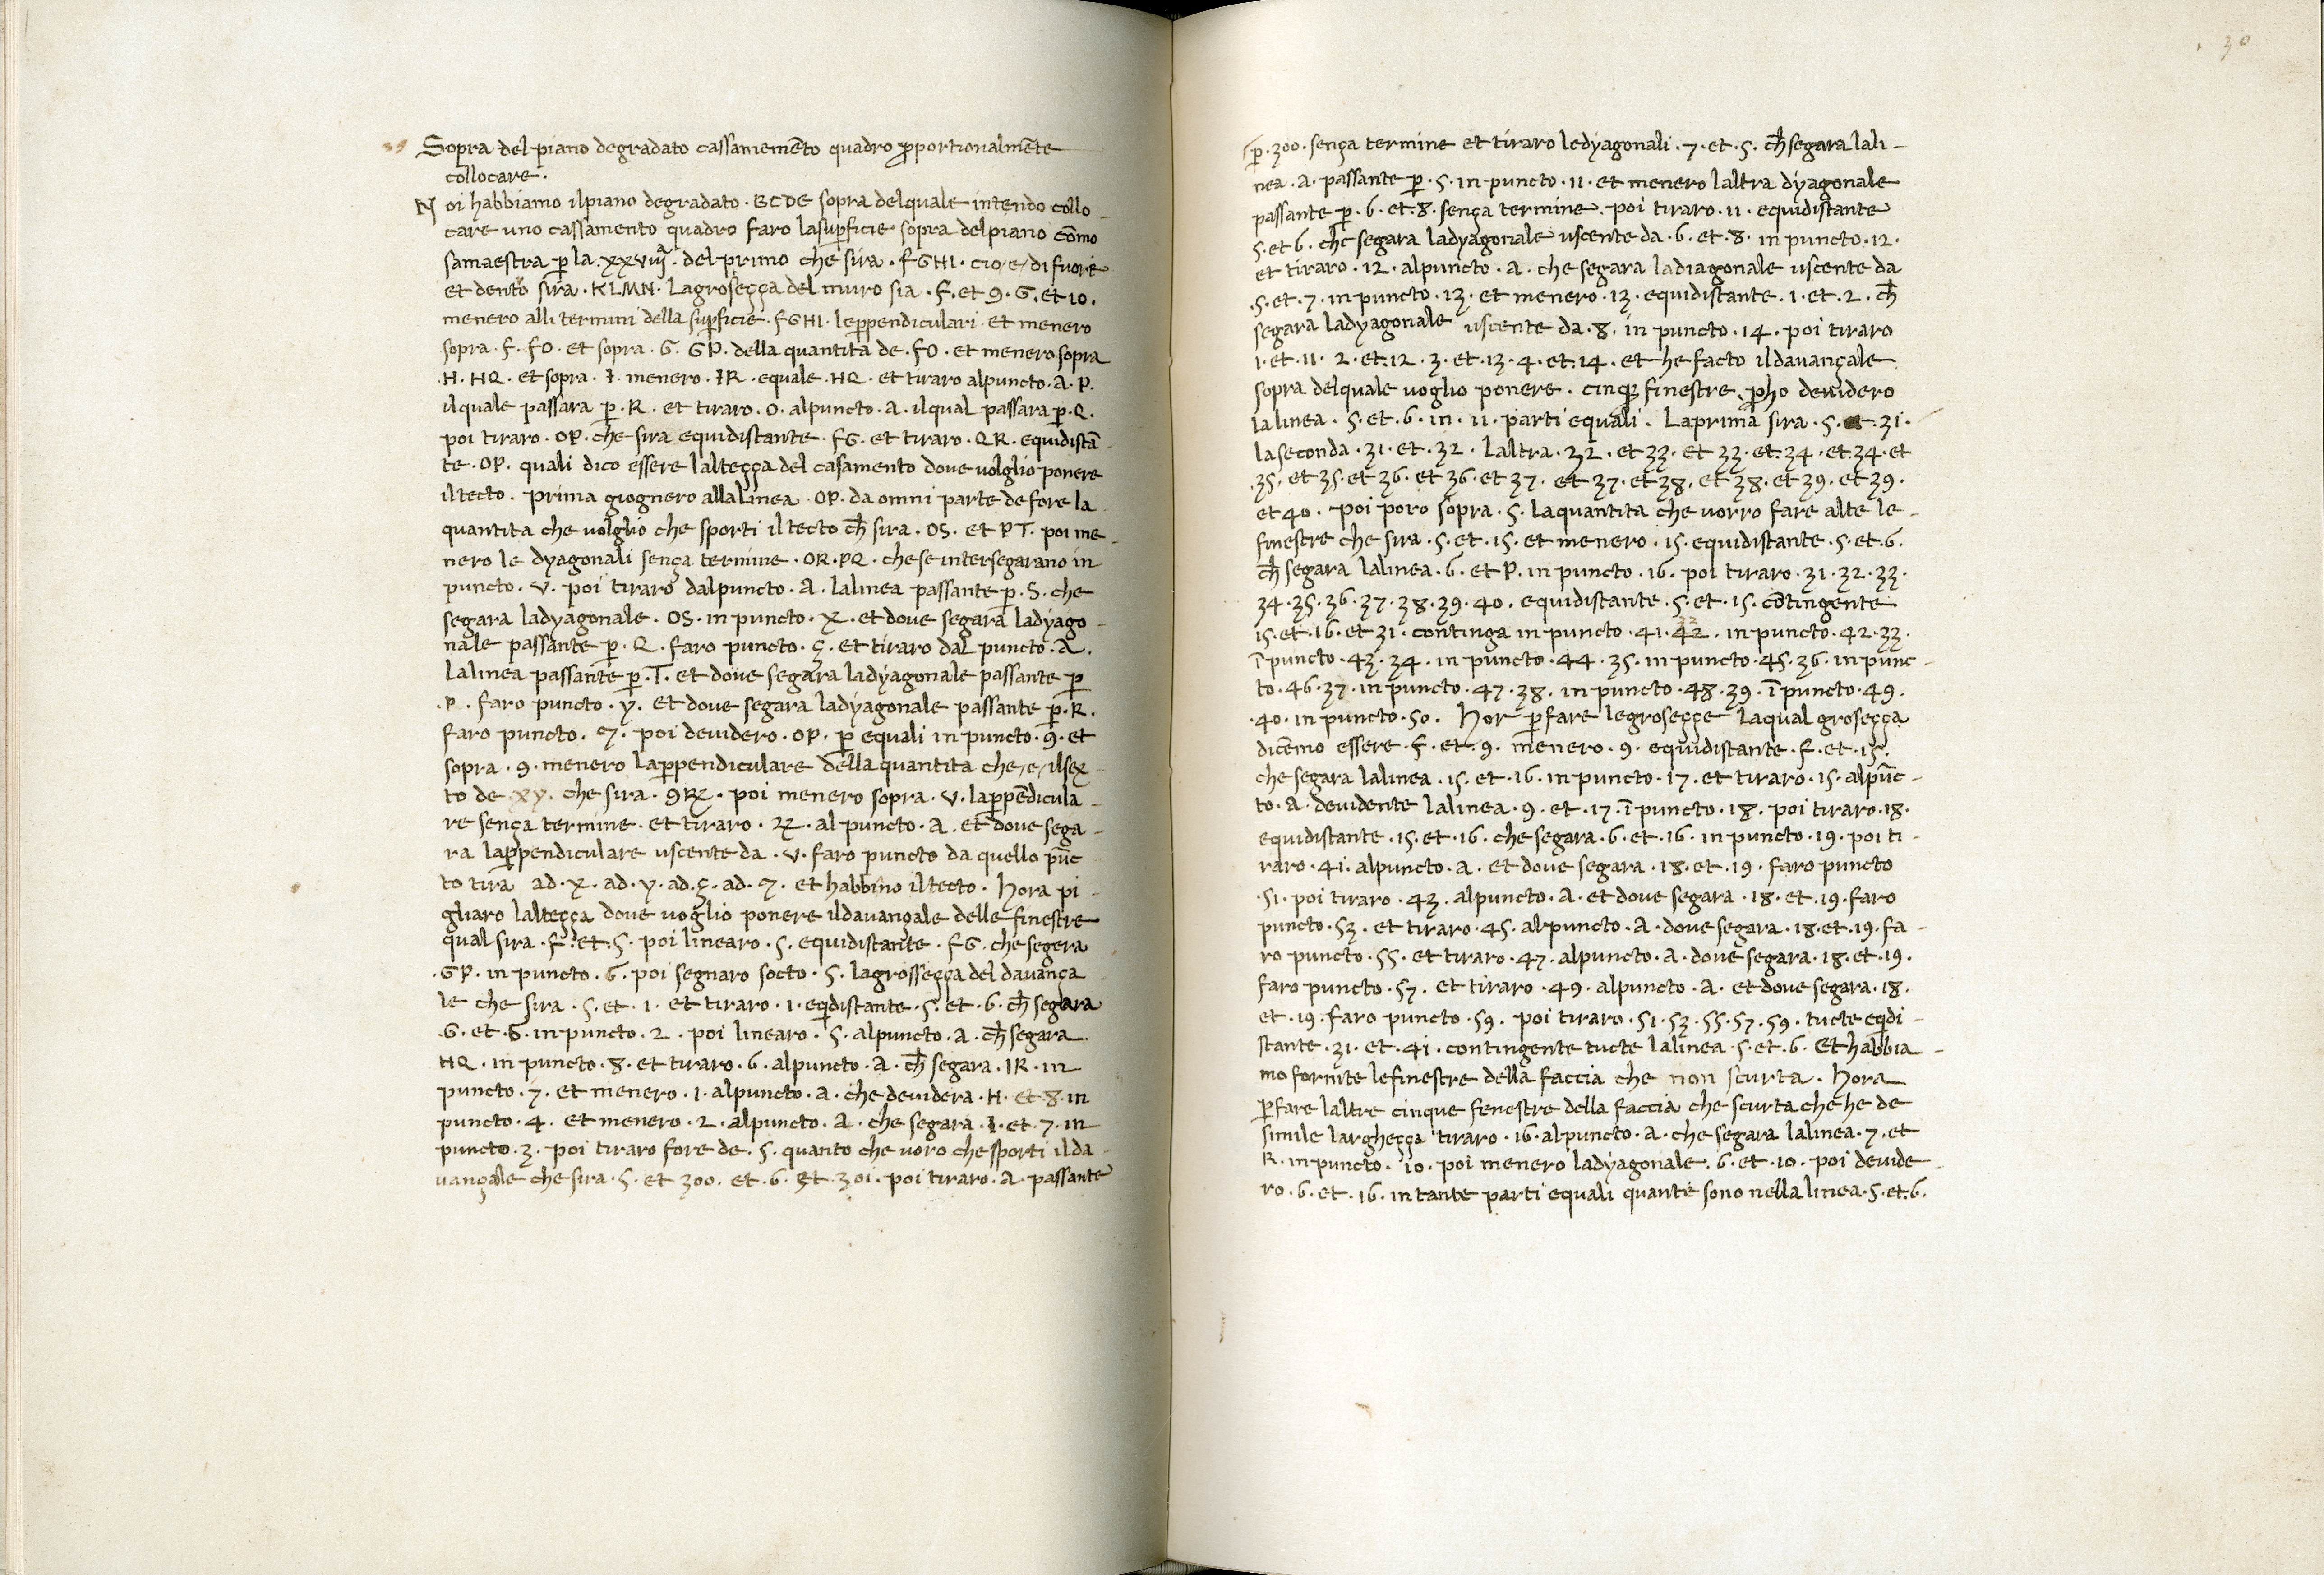 Sopra del piano degradato cassamemēto quadro ꝓportionalmēte
collocare.
Noi habbiamo ilpiano degradato · BCDE sopra delquale intendo collo-
care uno cassamento quadro faro lasupficie sopra delpiano cōmo
samaestra p̄ la .xxviiij.ª del primo che sira · FGHI · cio/e/ di fuore
et dentō sira · KLMN · lagroseçça del muro sia · F. et 9 · G. et 10.
menero alli termini della supficie · FGHI · lepp̄endiculari et menero
sopra · F · FO · et sopra · G · GP. della quantita de · FO · et menero sopra
·H · HQ · et sopra · I · menero · IR · equale · HQ · et tiraro alpuncto · A · P.
ilquale passara p̄ · R · et tiraro · O · alpuncto · A · ilqual passara p̄ · Q.
poi tiraro · OP. che sira equidistante · FG. et tiraro · QR. equidistā-
te · OP. quali dico essere lalteçça del casamento dove volglio ponere
iltecto. prima giognero allalinea · OP. da omni parte de fore la
quantita che volglio che sporti il tecto ch̄ sira · OS. et PT. poi me-
nero le dyagonali sença termine · OR · PQ · chese intersegarano in
puncto · V. poi tiraro dalpuncto · A. lalinea passante p̄ · S. che
segara ladyagonale · OS · in puncto · X. et dove segara ladyago-
nale passante p̄ · Q. faro puncto · ç. et tiraro dal puncto · A.
lalinea passante p̄ · T. et dove segara ladyagonale passante p̄
·P. faro puncto · y. et dove segara ladyagonale passante p̄ · R.
faro puncto. 7. poi devidero · OP. p̄ equali in puncto · 9 · et
sopra · 9 · menero lapp̄endiculare della quantita che/e/ ilsex
to de xy. che sira · 9R̶. poi menero sopra · V. lapp̄ēdicula-
re sença termine · et tiraro · R̶ · al puncto · A. et dove sega-
ra lapp̄endiculare uscente da · V. faro puncto da quello pūc-
to tira ad · X · ad · y · ad · ç · ad · 7 · et habbino iltecto. Hora pi-
gliaro lalteçça dove voglio ponere ildavançale delle finestre
qual sira · F. et · 5 · poi linearo · 5 · equidistante · FG · che segera
·GP. in puncto · 6 · poi segnaro socto · 5. lagrosseçça del davança
le che sira · 5 · et · 1 · et tiraro · 1 · eqidistante · 5 · et · 6 · ch̄ segara
·G · et · 6 · in puncto · 2. poi linearo · 5 · alpuncto · A · ch̄ segara
HQ · in puncto · 8 · et tiraro · 6 · alpuncto · A · ch̄ segara · IR · in
puncto · 7 · et menero · 1 · alpuncto · A · che devidera · H · et · 8 · in
puncto · 4 · et menero · 2 · alpuncto · A · che segara · I · et · 7 · in
puncto · 3 · poi tiraro fore de · 5 · quanto che voro che sporti ilda-
vançale che sira · 5 · et 300 · et · 6 · et · 301 · poi tiraro · A · passante
30
p̄ · 300 · sença termine et tiraro ledyagonali · 7 · et · 5 · ch̄ segara lali-
nea · A · passante p̄ · 5 · in puncto · 11 · et menero laltra dyagonale
passante p̄ · 6 · et · 8 · sença termine. poi tiraro · 11 · equidistante
5 · et 6 · che segara ladyagonale uscente da · 6 · et · 8 · in puncto · 12 ·
et tiraro · 12 · alpuncto · A · che segara ladiagonale uscente da
·5 · et · 7 · in puncto · 13 · et menero · 13 · equidistante · 1 · et · 2 · ch̄
segara ladyagonale uscente da · 8 · in puncto · 14 · poi tiraro
1 · et · 11 · 2 · et · 12 · 3 · et · 13 · 4 · et · 14 · et he facto ildavançale
sopra delquale voglio ponere · cinq; finestre p̄ho devidero
lalinea · 5 · et · 6 · in · 11 · parti equali. Laprima sira · 5 · et · 31 ·
laseconda · 31 · et · 32 · laltra · 32 · et 33 · et 33 · et · 34 · et · 34 · et
·35 · et 35 · et 36 · et 36 · et 37 · et 37 · et 38 · et 38 · et 39 · et 39 ·
et 40 · poi poro sopra · 5 · laquantita che vorro fare alte le-
finestre che sira · 5 · et · 15 · et menero · 15 · equidistante · 5 · et · 6 ·
ch̄ segara lalinea · 6 · et P · in puncto · 16 · poi tiraro · 31 · 32 · 33 ·
34 · 35 · 36 · 37 · 38 · 39 · 40 · equidistante · 5 · et · 15 · cōtingente
15 · et · 16 · et 31 · continga in puncto · 41 · 42 · in puncto · 42 · 33 ·
ī puncto · 43 · 34 · in puncto · 44 · 35 · in puncto · 45 · 36 · in punc-
to · 46 · 37 · in puncto · 47 · 38 · in puncto · 48 · 39 · ī puncto · 49 ·
·40 · in puncto · 50 · Hor p̄ fare legroseççe laqual groseçça
dicēmo essere · F · et · 9 · menero · 9 · equidistante · F · et · 15 ·
che segara lalinea · 15 · et · 16 · in puncto · 17 · et tiraro · 15 · alpūc-
to · A · devidente lalinea · 9 · et · 17 · ī puncto · 18 · poi tiraro · 18 ·
equidistante · 15 · et · 16 · che segara · 6 · et · 16 · in puncto · 19 · poi ti-
raro · 41 · alpuncto · A · et dove segara · 18 · et · 19 · faro puncto
·51 · poi tiraro · 43 · alpuncto · A · et dove segara · 18 · et · 19 · faro
puncto · 53 · et tiraro · 45 · alpuncto · A · dove segara · 18 · et · 19 · fa-
ro puncto · 55 · et tiraro · 47 · alpuncto · A · dove segara · 18 · et · 19 ·
faro puncto · 57 · et tiraro · 49 · alpuncto · A · et dove segara · 18 ·
et · 19 · faro puncto · 59 · poi tiraro · 51 · 53 · 55 · 57 · 59 · tucte eqdi-
stante · 31 · et · 41 · contingente tucte lalinea · 5 · et · 6 · Et habbia-
mo fornite lefinestre della faccia che non scurta · Hora
p̄ fare laltre cinque fenestre della faccia che scurta che he de
simile largheçça tiraro · 16 · alpuncto · A · che segara lalinea · 7 · et
R · in puncto · 10 · poi menero ladyagonale · 6 · et · 10 · poi devide-
ro · 6 · et · 16 · in tante parti equali quante sono nella linea · 5 · et · 6 ·